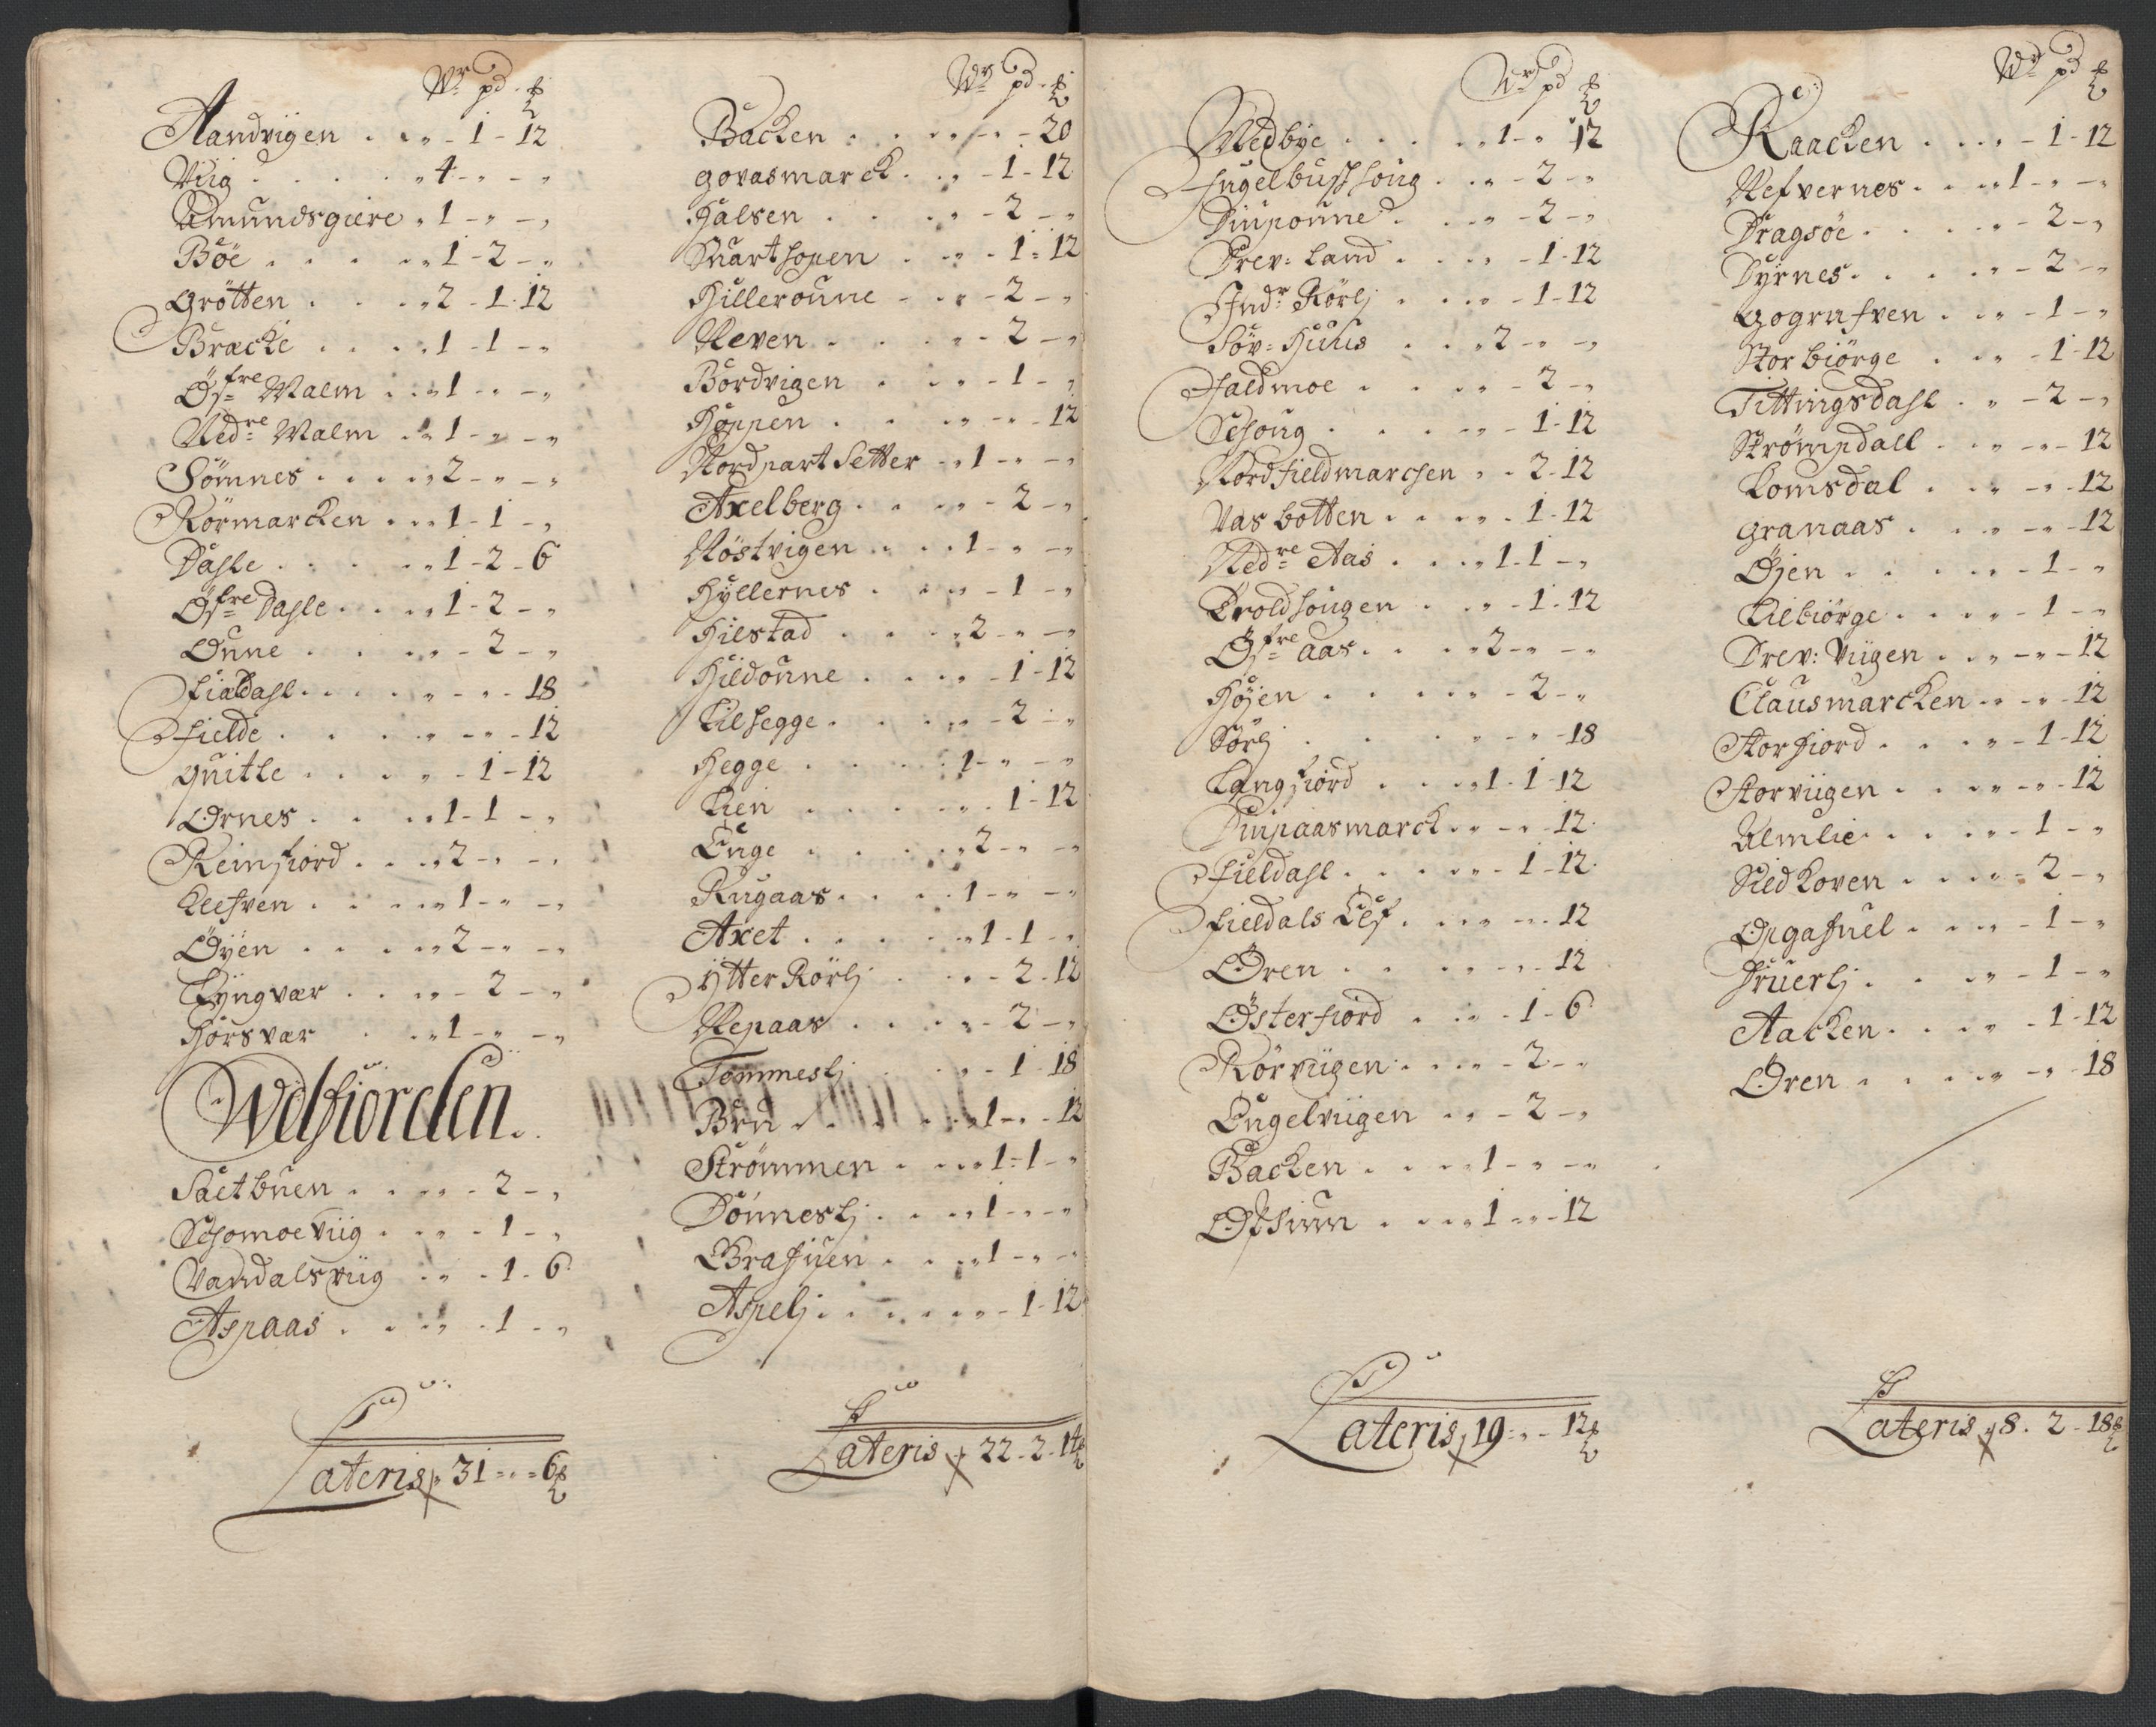 Wr pd ℔
Aandvigen . . „ - 1 - 12
Viig . . . . „ 4 - „ - „
Amundsgiere „ 1 - „ - „
Böe . . . . „ 1 - 2 - „
Grötten . . . „ 2 - 1 - 12
Bracke . . . „ 1 - 1 - „
Öfre Malm . . „ 1 - „ - „
Nedre Malm . „ 1 - „ - „
Sömnes . . . „ 2 - „ - „
Rörmarcken . . „ 1 - 1 - „
Dahle . . . . „ 1 - 2 - 6
Öfre Dahle . . . „ 1 - 2 - „
Oune . . . . „ - 2 - „
Fialdahl . . . . „ - „ - 18
Fielde . . . . „ - „ - 12
Quitle . . . . „ - 1 - 12
Ornes . . . „ 1 - 1 - „
Reinfiord . . . „ 2 - „ - „
Klefven . . . „ 1 - „ - „
Öyen . . . . „ 2 - „ - „
Lyngvær . . . „ - 2 - „
Horsvær . . „ 1 - „ - „
Welfiorden.
Saetbuen . . . „ - 2 - „
Schomoeviig . . „ - 1 - „
Vandalsviig . . „ - 1 - 6
Aspaas . . . „ - 1 - „
Lateris „ 31 - „ - 6 ℔
Wr pd ℔
Backen . . . . „ - „ - 20
Govasmarck . . „ - 1 - 12
Halsen . . . . „ - 2 - „
Suarthopen . . „ - 1 - 12
Hilleroune . . „ - 2 - „
Reven . . . . „ - 2 - „
Bordvigen . . . „ - 1 - „
Hoppen . . . . „ - „ - 12
Nordpart Setter „ 1 - „ - „
Axelberg . . . „ - 2 - „
Nöstvigen . . . „ 1 - „ - „
Hyllernes . . . „ - 1 - „
Hilstad . . . „ 2 - „ - „
Hildoune . . . „ - 1 - 12
Lilhegge . . . „ - 2 - „
Hegge . . . . „ 1 - „ - „
Lien . . . . „ - 1 - 12
Enge . . . . „ 2 - „ - „
Rugaas . . . „ 1 - „ - „
Axet . . . . „ 1 - 1 - „
Ytter Rörlj . . „ - 2 - 12
Repaas . . . „ - 2 - „
Tommeslj . . . „ - 1 - 18
Bru . . . . „ 1 - „ - 12
Strömmen . . . „ 1 - 1 - „
Dönneslj . . . „ 1 - „ - „
Grafuen . . . „ 1 - „ - „
Aspelj . . . . „ - 1 - 12
Lateris „ 22 - 2 - 14 ℔
Wr pd ℔
Nedbye . . . . „ 1 - „ 12
Ingelbushoug . . „ - 2 - „
Diupoune . . . „ - 2 - „
Drev: Land . . „ - 1 - 12
Indr Rörlj . . . „ - 1 - 12
Söv: Huus . . „ 2 - „ - „
Faldmoe . . . „ - 2 - „
Schoug . . . . „ - 1 - 12
Nordfieldmarchen „ - 2 - 12
Vasbotten . . . „ - 1 - 12
Nedre Aas . . . „ 1 - 1 - „
Troldhougen . . „ - 1 - 12
Öfre aas . . . „ 2 - „ - „
Höjen . . . . „ - 2 - „
Sörlj . . . . „ - „ - 18
Langfiord . . . „ 1 - 1 - 12
Diupaasmarck . „ - „ - 12
Fieldahl . . . . „ - 1 - 12
Fieldals Elf . . . „ - „ - 12
Oren . . . . „ - „ - 12
Österfiord . . „ - 1 - 6
Rörviigen . . . „ - 2 - „
Engelviigen . . „ - 2 - „
Backen . . . „ 1 - „ - „
Lateris „ 19 - „ - 12 ℔
Wr pd ℔
Raacken . . . „ - 1 - 12
Refvernes . . . „ 1 - „ - „
Dragsöe . . . . „ - 2 - „
Dyrnes . . . . „ - 2 - „
Gografven . . „ - 1 - „
Storbiörge . . „ - 1 - 12
Tittingsdahl . „ - 2 - „
Strömpdall . . „ - „ - 12
Lomsdal . . . „ - „ - 12
Granaas . . . „ - „ - 12
Öjen . . . . „ - 1 - „
Lilbiörge . . . „ - 1 - „
Drev: Viigen . . „ - „ - 12
Clausmarcken . „ - „ - 12
Storfiord . . . „ - 1 - 12
Storviigen . . . „ - „ - 12
Almlie . . . . „ - 1 - „
Sildkoven . . . „ - 2 - „
Opgafuel . . . „ - 1 - „
Struerlj . . . „ - 1 - „
Aacken . . . „ - 1 - 12
Oren . . . . „ - „ - 18
Lateris „ 8 - 2 - 18 ℔